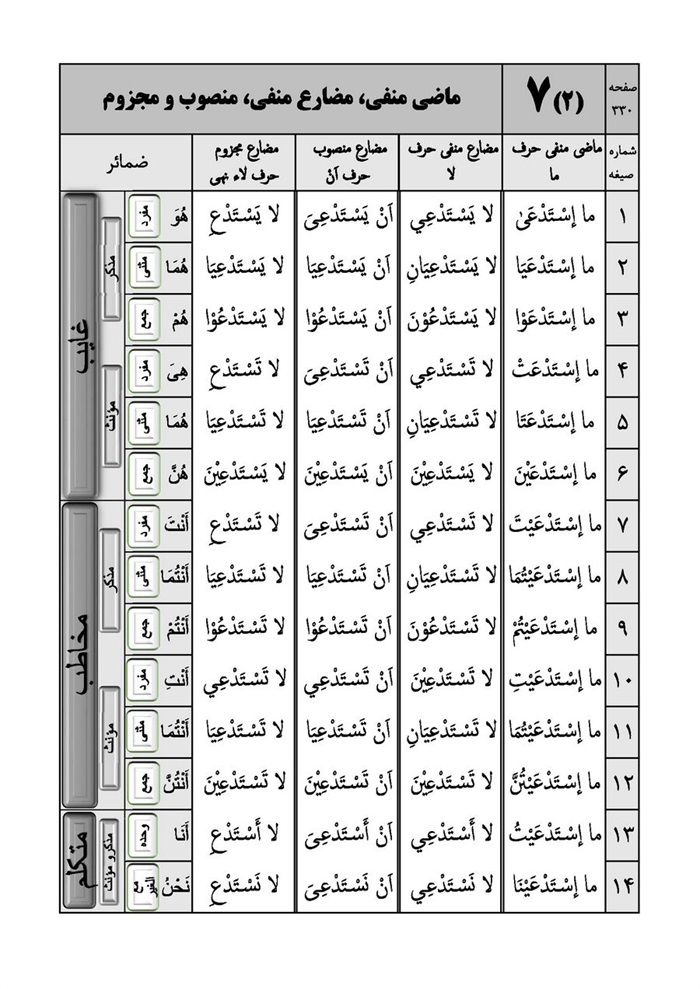 صفحه ۳۳۰ (۲)۷ ماضی منفی، مضارع منفی، منصوب و مجزوم
شماره صیغه ماضی منفی حرف ما مضارع منفی حرف لا مضارع منصوب حرف اَنْ مضارع مجزوم حرف لاء نهی ضمائر
۱ ما اِسْتَدْعَیٰ لا يَسْتَدْعِي اَنْ يَسْتَدْعِیَ لا يَسْتَدْعِ هُوَ مفرد مذکر غایب
۲ ما اِسْتَدْعَيَا لا يَسْتَدْعِيَانِ اَنْ يَسْتَدْعِيَا لا يَسْتَدْعِيَا هُمَا مثنی
۳ ما اِسْتَدْعَوْا لا يَسْتَدْعُوْنَ اَنْ يَسْتَدْعُوْا لا يَسْتَدْعُوْا هُمْ جمع
۴ ما اِسْتَدْعَتْ لا تَسْتَدْعِي اَنْ تَسْتَدْعِیَ لا تَسْتَدْعِ هِیَ مفرد مؤنث
۵ ما اِسْتَدْعَتَا لا تَسْتَدْعِيَانِ اَنْ تَسْتَدْعِيَا لا تَسْتَدْعِيَا هُمَا مثنی
۶ ما اِسْتَدْعَيْنَ لا يَسْتَدْعِيْنَ اَنْ يَسْتَدْعِيْنَ لا يَسْتَدْعِيْنَ هُنَّ جمع
۷ ما اِسْتَدْعَيْتَ لا تَسْتَدْعِي اَنْ تَسْتَدْعِیَ لا تَسْتَدْعِ أَنْتَ مفرد مذکر مخاطب
۸ ما اِسْتَدْعَيْتُمَا لا تَسْتَدْعِيَانِ اَنْ تَسْتَدْعِيَا لا تَسْتَدْعِيَا أَنْتُمَا مثنی
۹ ما اِسْتَدْعَيْتُمْ لا تَسْتَدْعُوْنَ اَنْ تَسْتَدْعُوْا لا تَسْتَدْعُوْا أَنْتُمْ جمع
۱۰ ما اِسْتَدْعَيْتِ لا تَسْتَدْعِيْنَ اَنْ تَسْتَدْعِي لا تَسْتَدْعِي أَنْتِ مفرد مؤنث
۱۱ ما اِسْتَدْعَيْتُمَا لا تَسْتَدْعِيَانِ اَنْ تَسْتَدْعِيَا لا تَسْتَدْعِيَا أَنْتُمَا مثنی
۱۲ ما اِسْتَدْعَيْتُنَّ لا تَسْتَدْعِيْنَ اَنْ تَسْتَدْعِيْنَ لا تَسْتَدْعِيْنَ أَنْتُنَّ جمع
۱۳ ما اِسْتَدْعَيْتُ لا أَسْتَدْعِي اَنْ أَسْتَدْعِیَ لا أَسْتَدْعِ أَنَا وحده مذکر و مؤنث متکلم
۱۴ ما اِسْتَدْعَيْنَا لا نَسْتَدْعِي اَنْ نَسْتَدْعِیَ لا نَسْتَدْعِ نَحْنُ مع الغیر